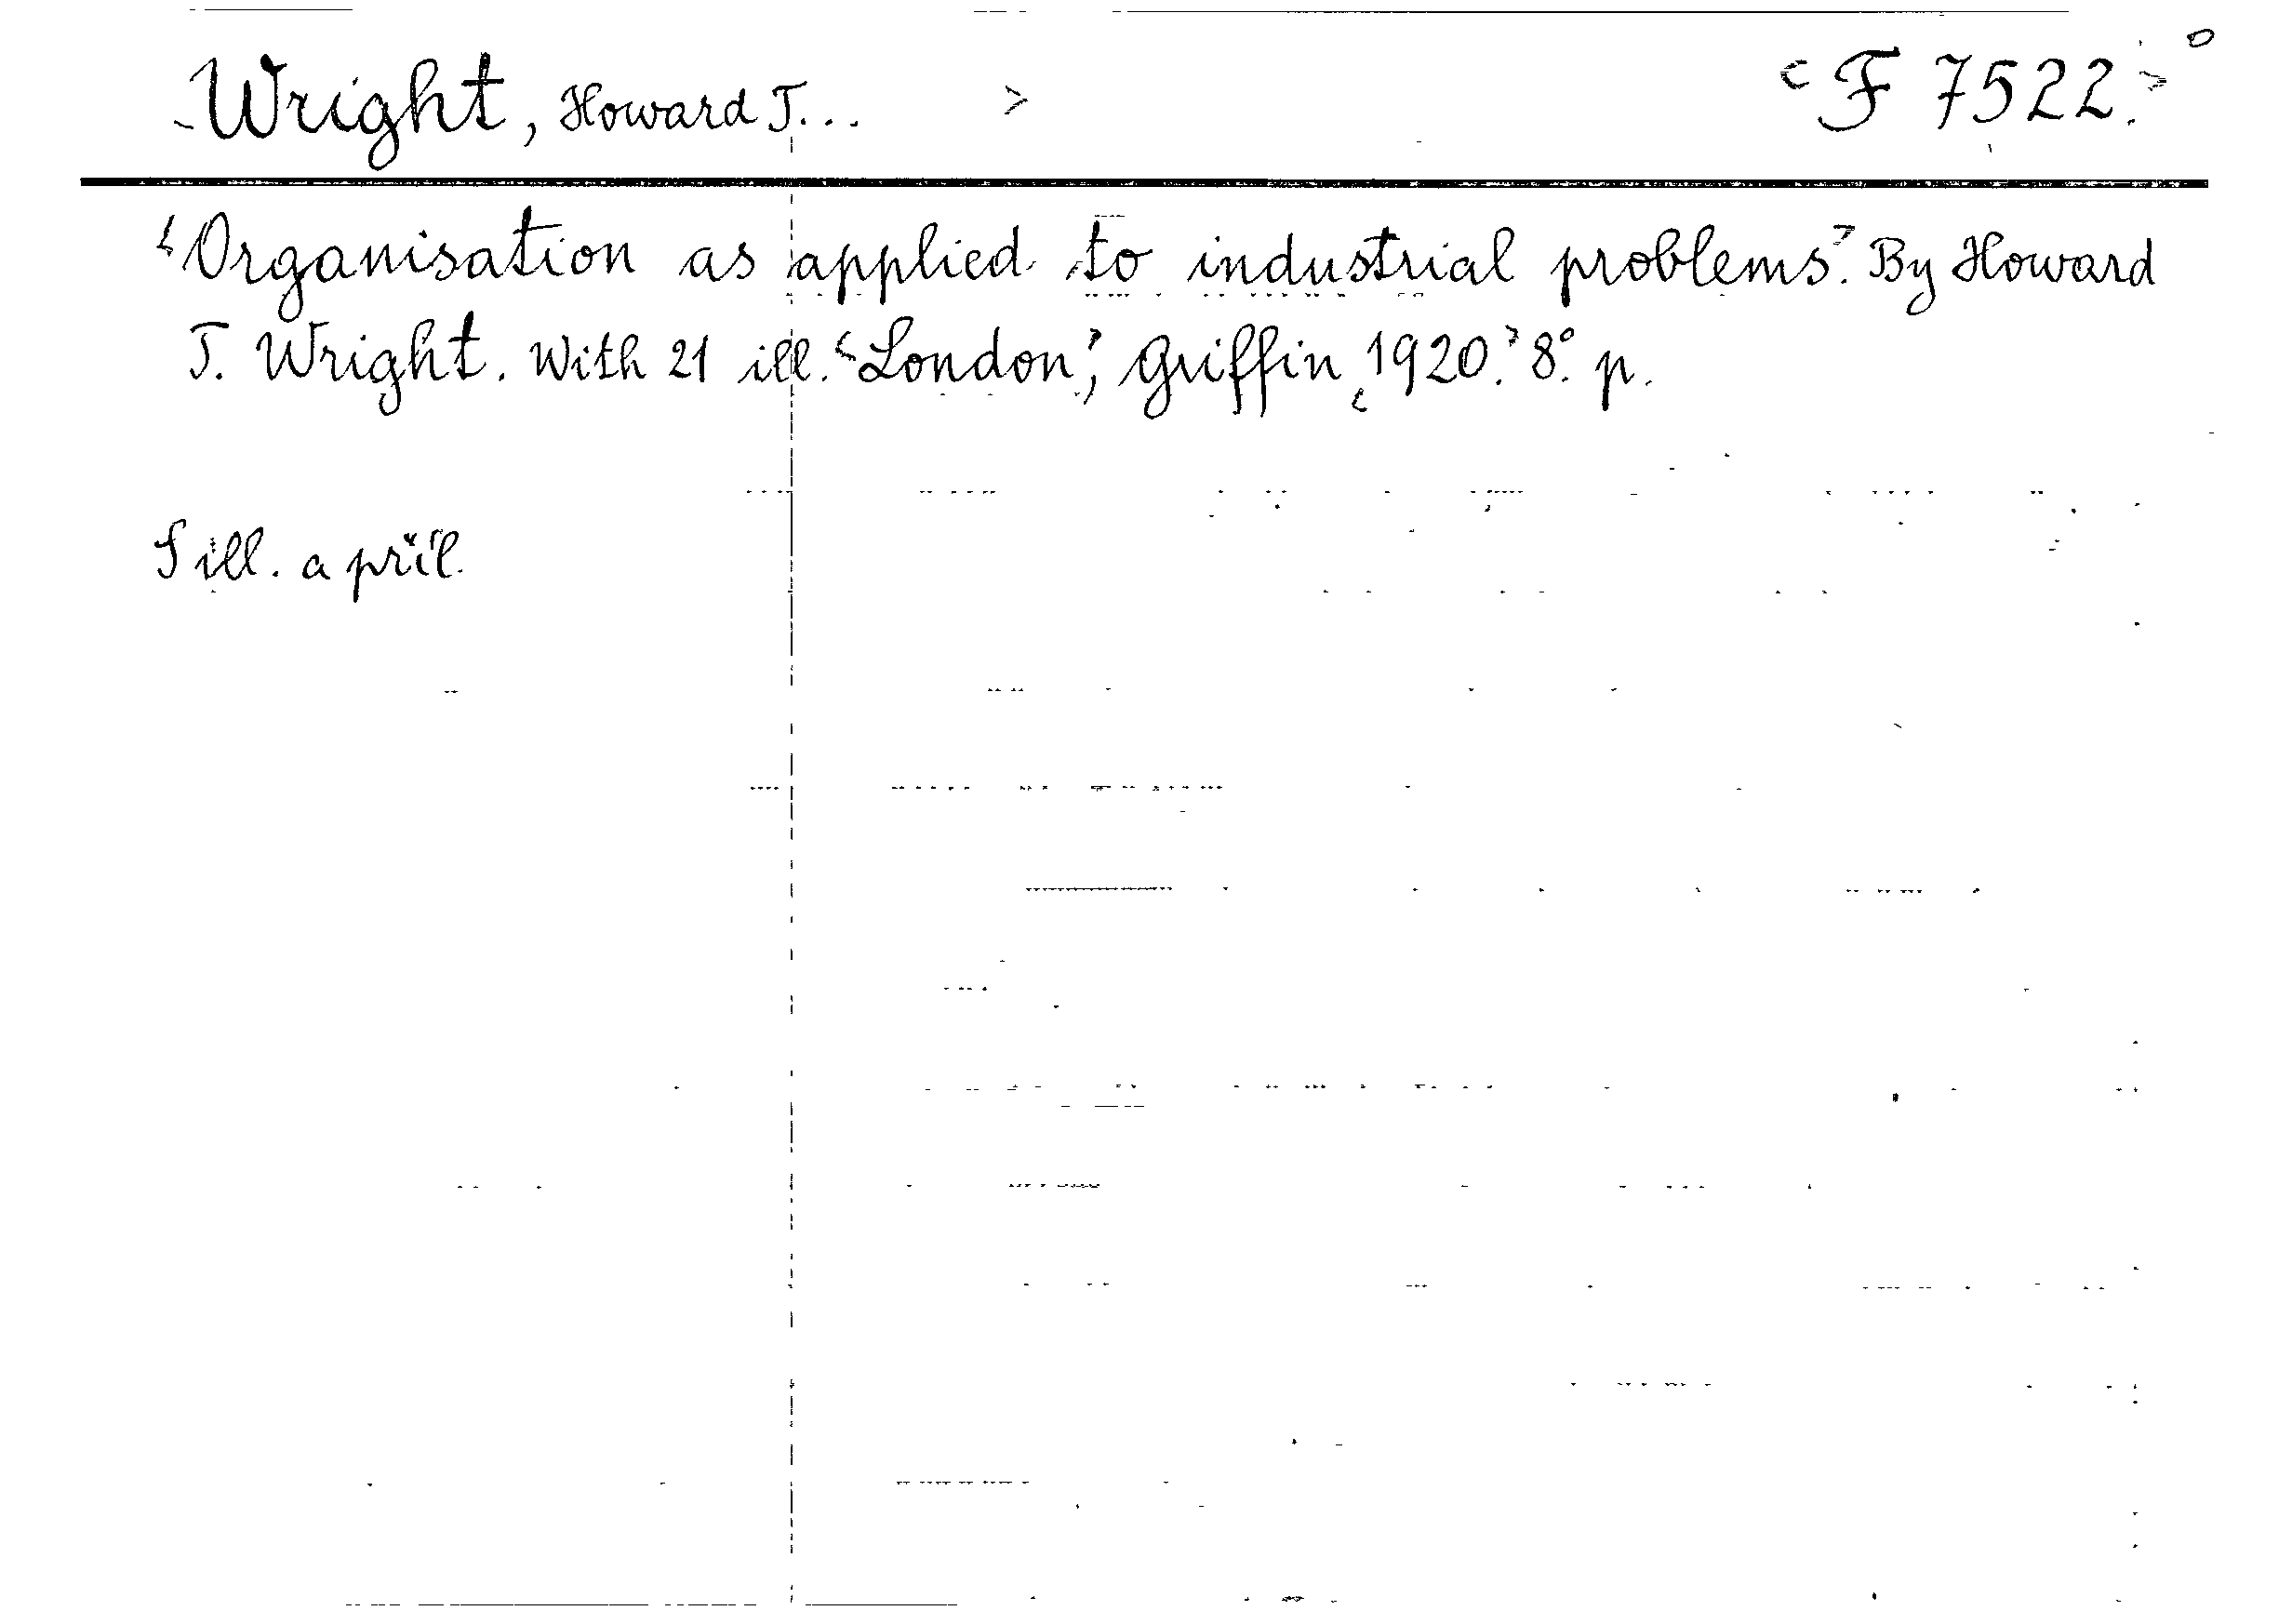 Wright, Howard T... > <F 7522.>
<Organisation as applied to industrial problems>. By Howard
T. Wright. With 21 ill. <London>, Griffin <1920.> 8°. p.
S ill. a příl.